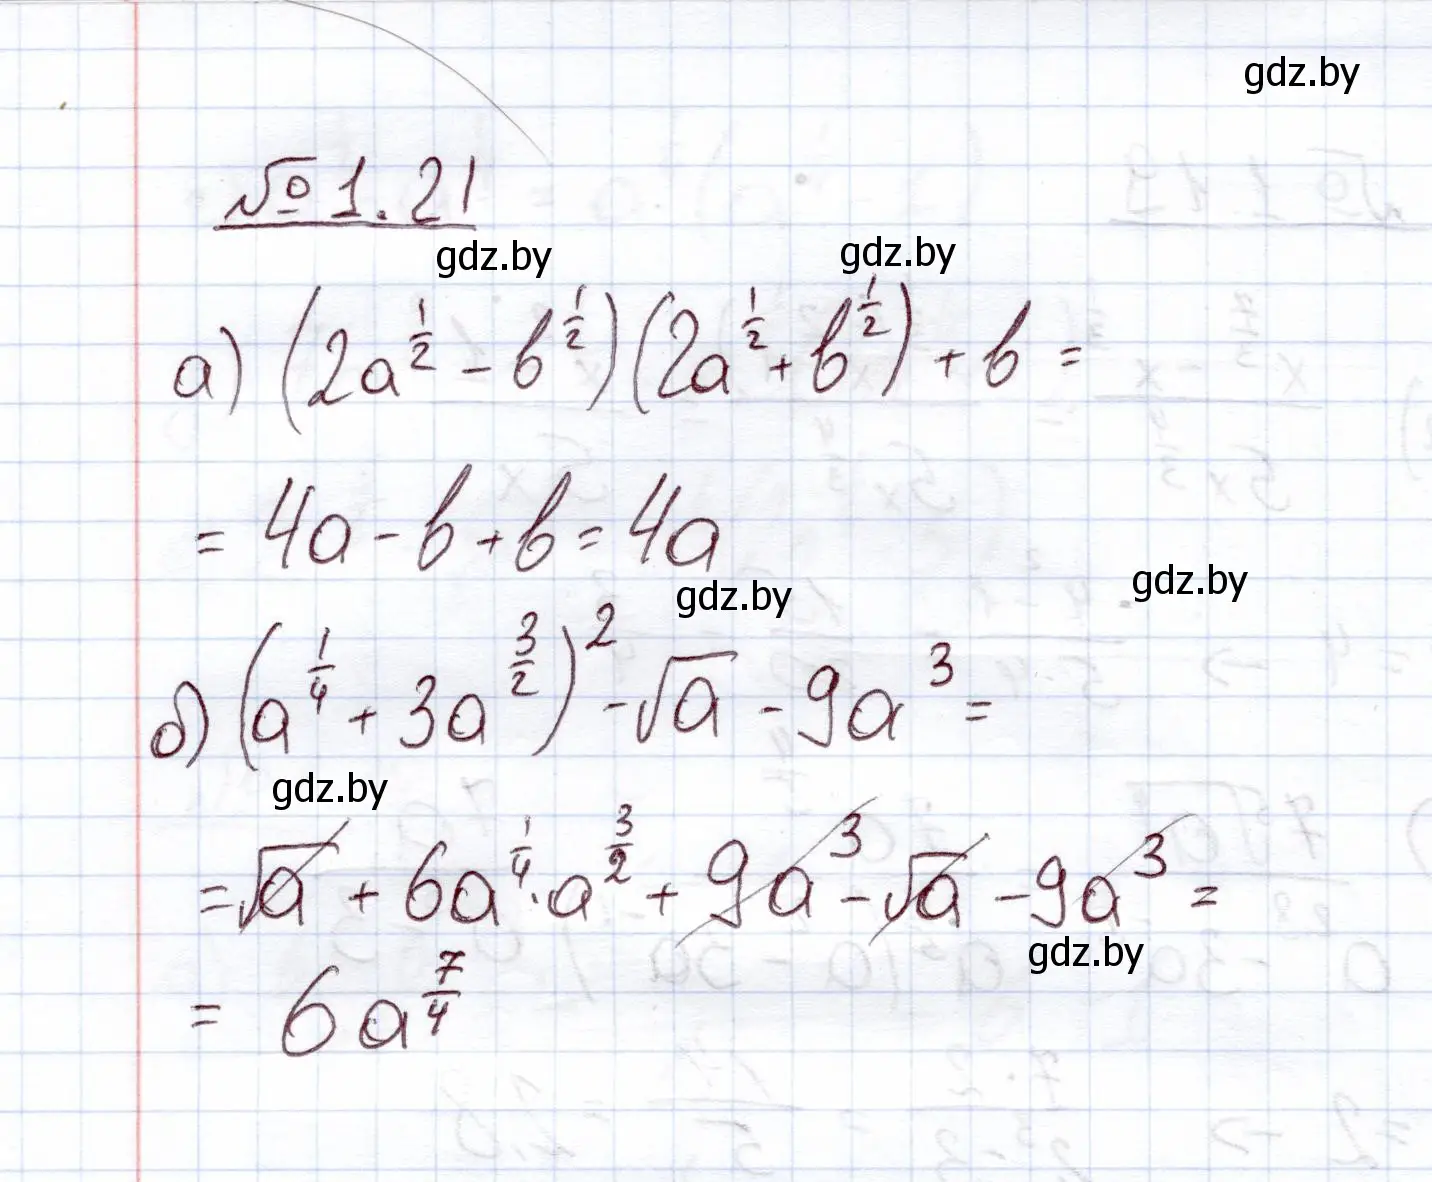 gdz.by
№ 1.21
gdz.by gdz.by
а) (2a^{1/2} - b^{1/2})(2a^{1/2} + b^{1/2}) + b =
= 4a - b + b = 4a
gdz.by gdz.by
б) (a^{1/4} + 3a^{3/2})^2 - √a - 9a^3 =
gdz.by
= √a + 6a^{1/4} · a^{3/2} + 9a^3 - √a - 9a^3 =
gdz.by
= 6a^{7/4}